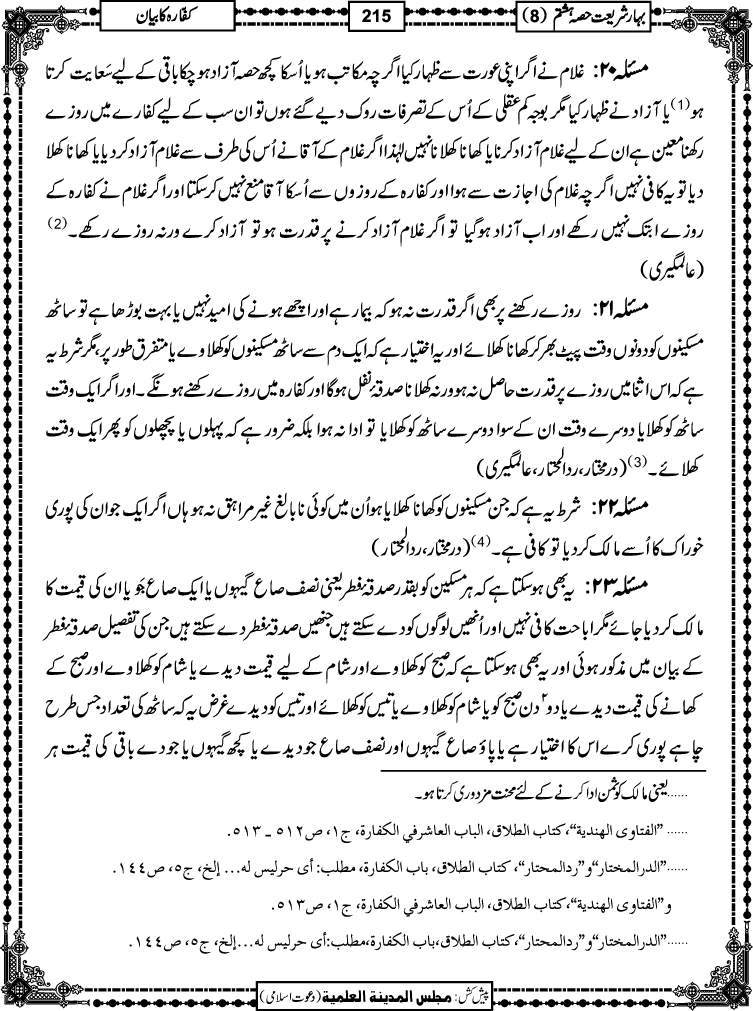 بہارِ شریعت حصہ ہشتم (8)
215
کفارہ کا بیان
مسئلہ ۲۰: غلام نے اگر اپنی عورت سے ظہار کیا اگرچہ مکاتب ہو یا اُسکا کچھ حصہ آزاد ہو چکا باقی کے لیے سَعایت کرتا
ہو(1) یا آزاد نے ظہار کیا مگر بوجہ کم عقلی کے اُس کے تصرفات روک دیے گئے ہوں تو ان سب کے لیے کفارے میں روزے
رکھنا معین ہے ان کے لیے غلام آزاد کرنا یا کھانا کھلانا نہیں لہٰذا اگر غلام کے آقا نے اُس کی طرف سے غلام آزاد کر دیا یا کھانا کھلا
دیا تو یہ کافی نہیں اگرچہ غلام کی اجازت سے ہوا اور کفارہ کے روزوں سے اُسکا آقا منع نہیں کر سکتا اور اگر غلام نے کفارہ کے
روزے ابتک نہیں رکھے اور اب آزاد ہو گیا تو اگر غلام آزاد کرنے پر قدرت ہو تو آزاد کرے ورنہ روزے رکھے۔(2)
(عالمگیری)
مسئلہ ۲۱: روزے رکھنے پر بھی اگر قدرت نہ ہو کہ بیمار ہے اور اچھے ہونے کی امید نہیں یا بہت بوڑھا ہے تو ساٹھ
مسکینوں کو دونوں وقت پیٹ بھر کر کھانا کھلائے اور یہ اختیار ہے کہ ایک دم سے ساٹھ مسکینوں کو کھلا دے یا متفرق طور پر، مگر شرط یہ
ہے کہ اس اثنا میں روزے پر قدرت حاصل نہ ہو ورنہ کھلانا صدقۂ نفل ہوگا اور کفارہ میں روزے رکھنے ہونگے۔ اور اگر ایک وقت
ساٹھ کو کھلایا دوسرے وقت ان کے سوا دوسرے ساٹھ کو کھلایا تو ادا نہ ہوا بلکہ ضرور ہے کہ پہلوں یا پچھلوں کو پھر ایک وقت
کھلائے۔(3) (درمختار، ردالمحتار، عالمگیری)
مسئلہ ۲۲: شرط یہ ہے کہ جن مسکینوں کو کھانا کھلایا ہو اُن میں کوئی نابالغ غیر مراہق نہ ہو ہاں اگر ایک جوان کی پوری
خوراک کا اُسے مالک کر دیا تو کافی ہے۔(4) (درمختار، ردالمحتار)
مسئلہ ۲۳: یہ بھی ہو سکتا ہے کہ ہر مسکین کو بقدر صدقۂ فطر یعنی نصف صاع گیہوں یا ایک صاع جَو یا ان کی قیمت کا
مالک کر دیا جائے مگر اباحت کافی نہیں اور اُنھیں لوگوں کو دے سکتے ہیں جنھیں صدقۂ فطر دے سکتے ہیں جن کی تفصیل صدقۂ فطر
کے بیان میں مذکور ہوئی اور یہ بھی ہو سکتا ہے کہ صبح کو کھلا دے اور شام کے لیے قیمت دیدے یا شام کو کھلا دے اور صبح کے
کھانے کی قیمت دیدے یا دو۲ دن صبح کو یا شام کو کھلا دے یا تیس کو کھلائے اور تیس کو دیدے غرض یہ کہ ساٹھ کی تعداد جس طرح
چاہے پوری کرے اس کا اختیار ہے یا پاؤ صاع گیہوں اور نصف صاع جو دیدے یا کچھ گیہوں یا جو دے باقی کی قیمت ہر
......یعنی مالک کو ثمن ادا کرنے کے لئے محنت مزدوری کرتا ہو۔
...... ”الفتاوی الهندیة“، کتاب الطلاق، الباب العاشر في الکفارة، ج١، ص٥١٢ ـ ٥١٣.
......”الدرالمختار“ و ”ردالمحتار“، کتاب الطلاق، باب الکفارة، مطلب: أی حرلیس له... إلخ، ج٥، ص١٤٤.
و ”الفتاوی الهندیة“، کتاب الطلاق، الباب العاشر في الکفارة، ج١، ص٥١٣.
......”الدرالمختار“ و ”ردالمحتار“، کتاب الطلاق، باب الکفارة، مطلب: أی حرلیس له...إلخ، ج٥، ص١٤٤.
پیش کش: مجلس المدینة العلمیة (دعوتِ اسلامی)